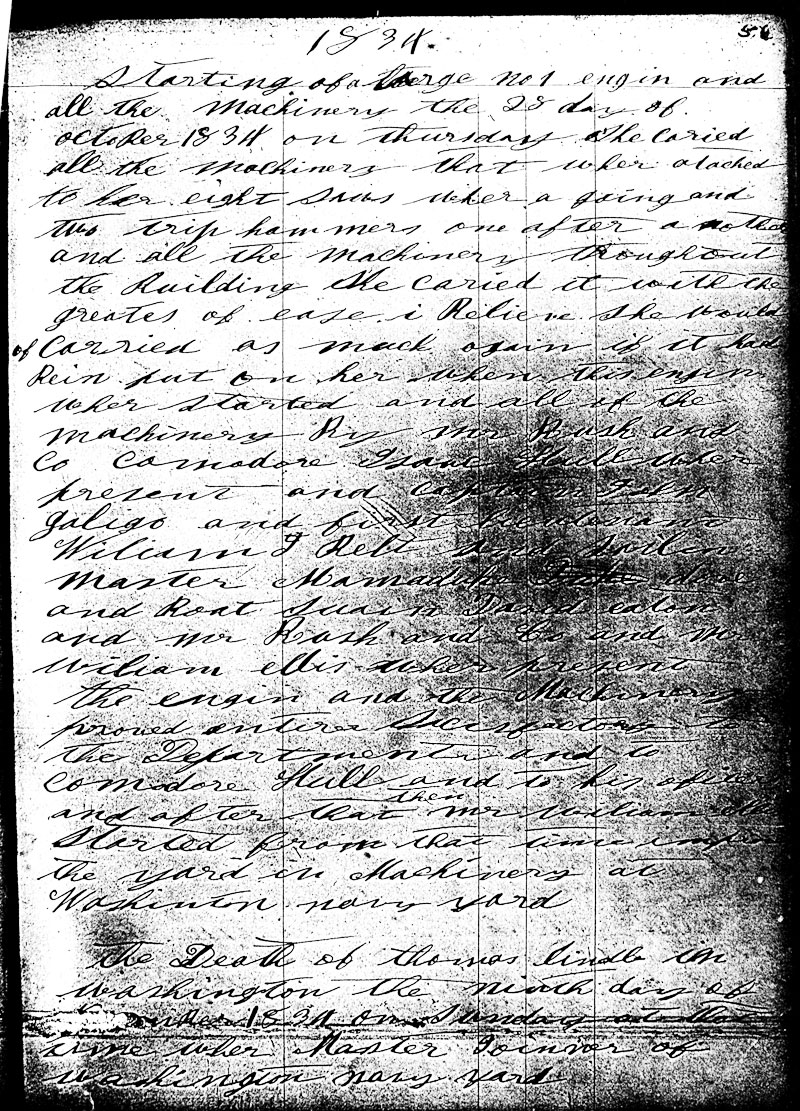 56
1834.
Starting of a large no 1 engin and
all the Machinery the 28 day of
october 1834 on thursday She Caried
all the Machinery that wher atached
to her eight Saws wher a going and
two trip hammers one after a nother
and all the Machinery throughout
the Building She Caried it with the
greates of ease i Believe She would
of Carried as much again if it had
Bein put on her when this engin
wher Started and all of the
machinery By mr Rush and
Co Comodore Isaac Hull wher
present and Captin John
galigo and first
Wiliam J Belt and Sailin
Master Marmaduke dove
and Boat Swain David eaton
and mr Rush and Co and Mr
William ellis wher present
the engin and the Machinery
proved entire to
the Department and to
Comodore Hull and to his oficers
and after that then mr William
Started from that time
the yard in Machinery at
Washinton navy yard
the Death of thomas lindle in
Washington the ninth day of
1834 on Sunday
wher Master Joinnor of
Washington navy yard